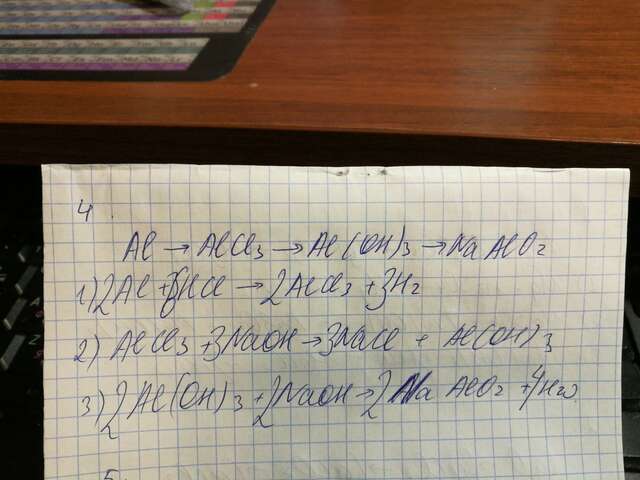 4.
Al → AlCl3 → Al(OH)3 → NaAlO2
1) 2Al + 6HCl → 2AlCl3 + 3H2
2) AlCl3 + 3NaOH → 3NaCl + Al(OH)3
3) 2Al(OH)3 + 2NaOH → 2NaAlO2 + 4H2O